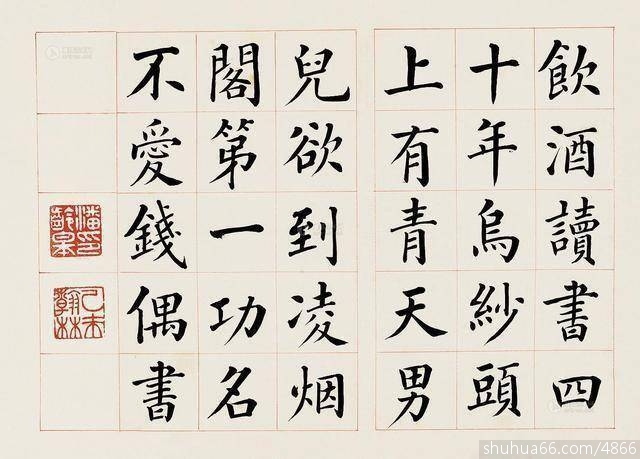 飲酒讀書四
十年烏紗頭
上有青天男
兒欲到凌烟
閣第一功名
不愛錢偶書
潘印齡皋
乙未翰林
shuhua66.com/4866